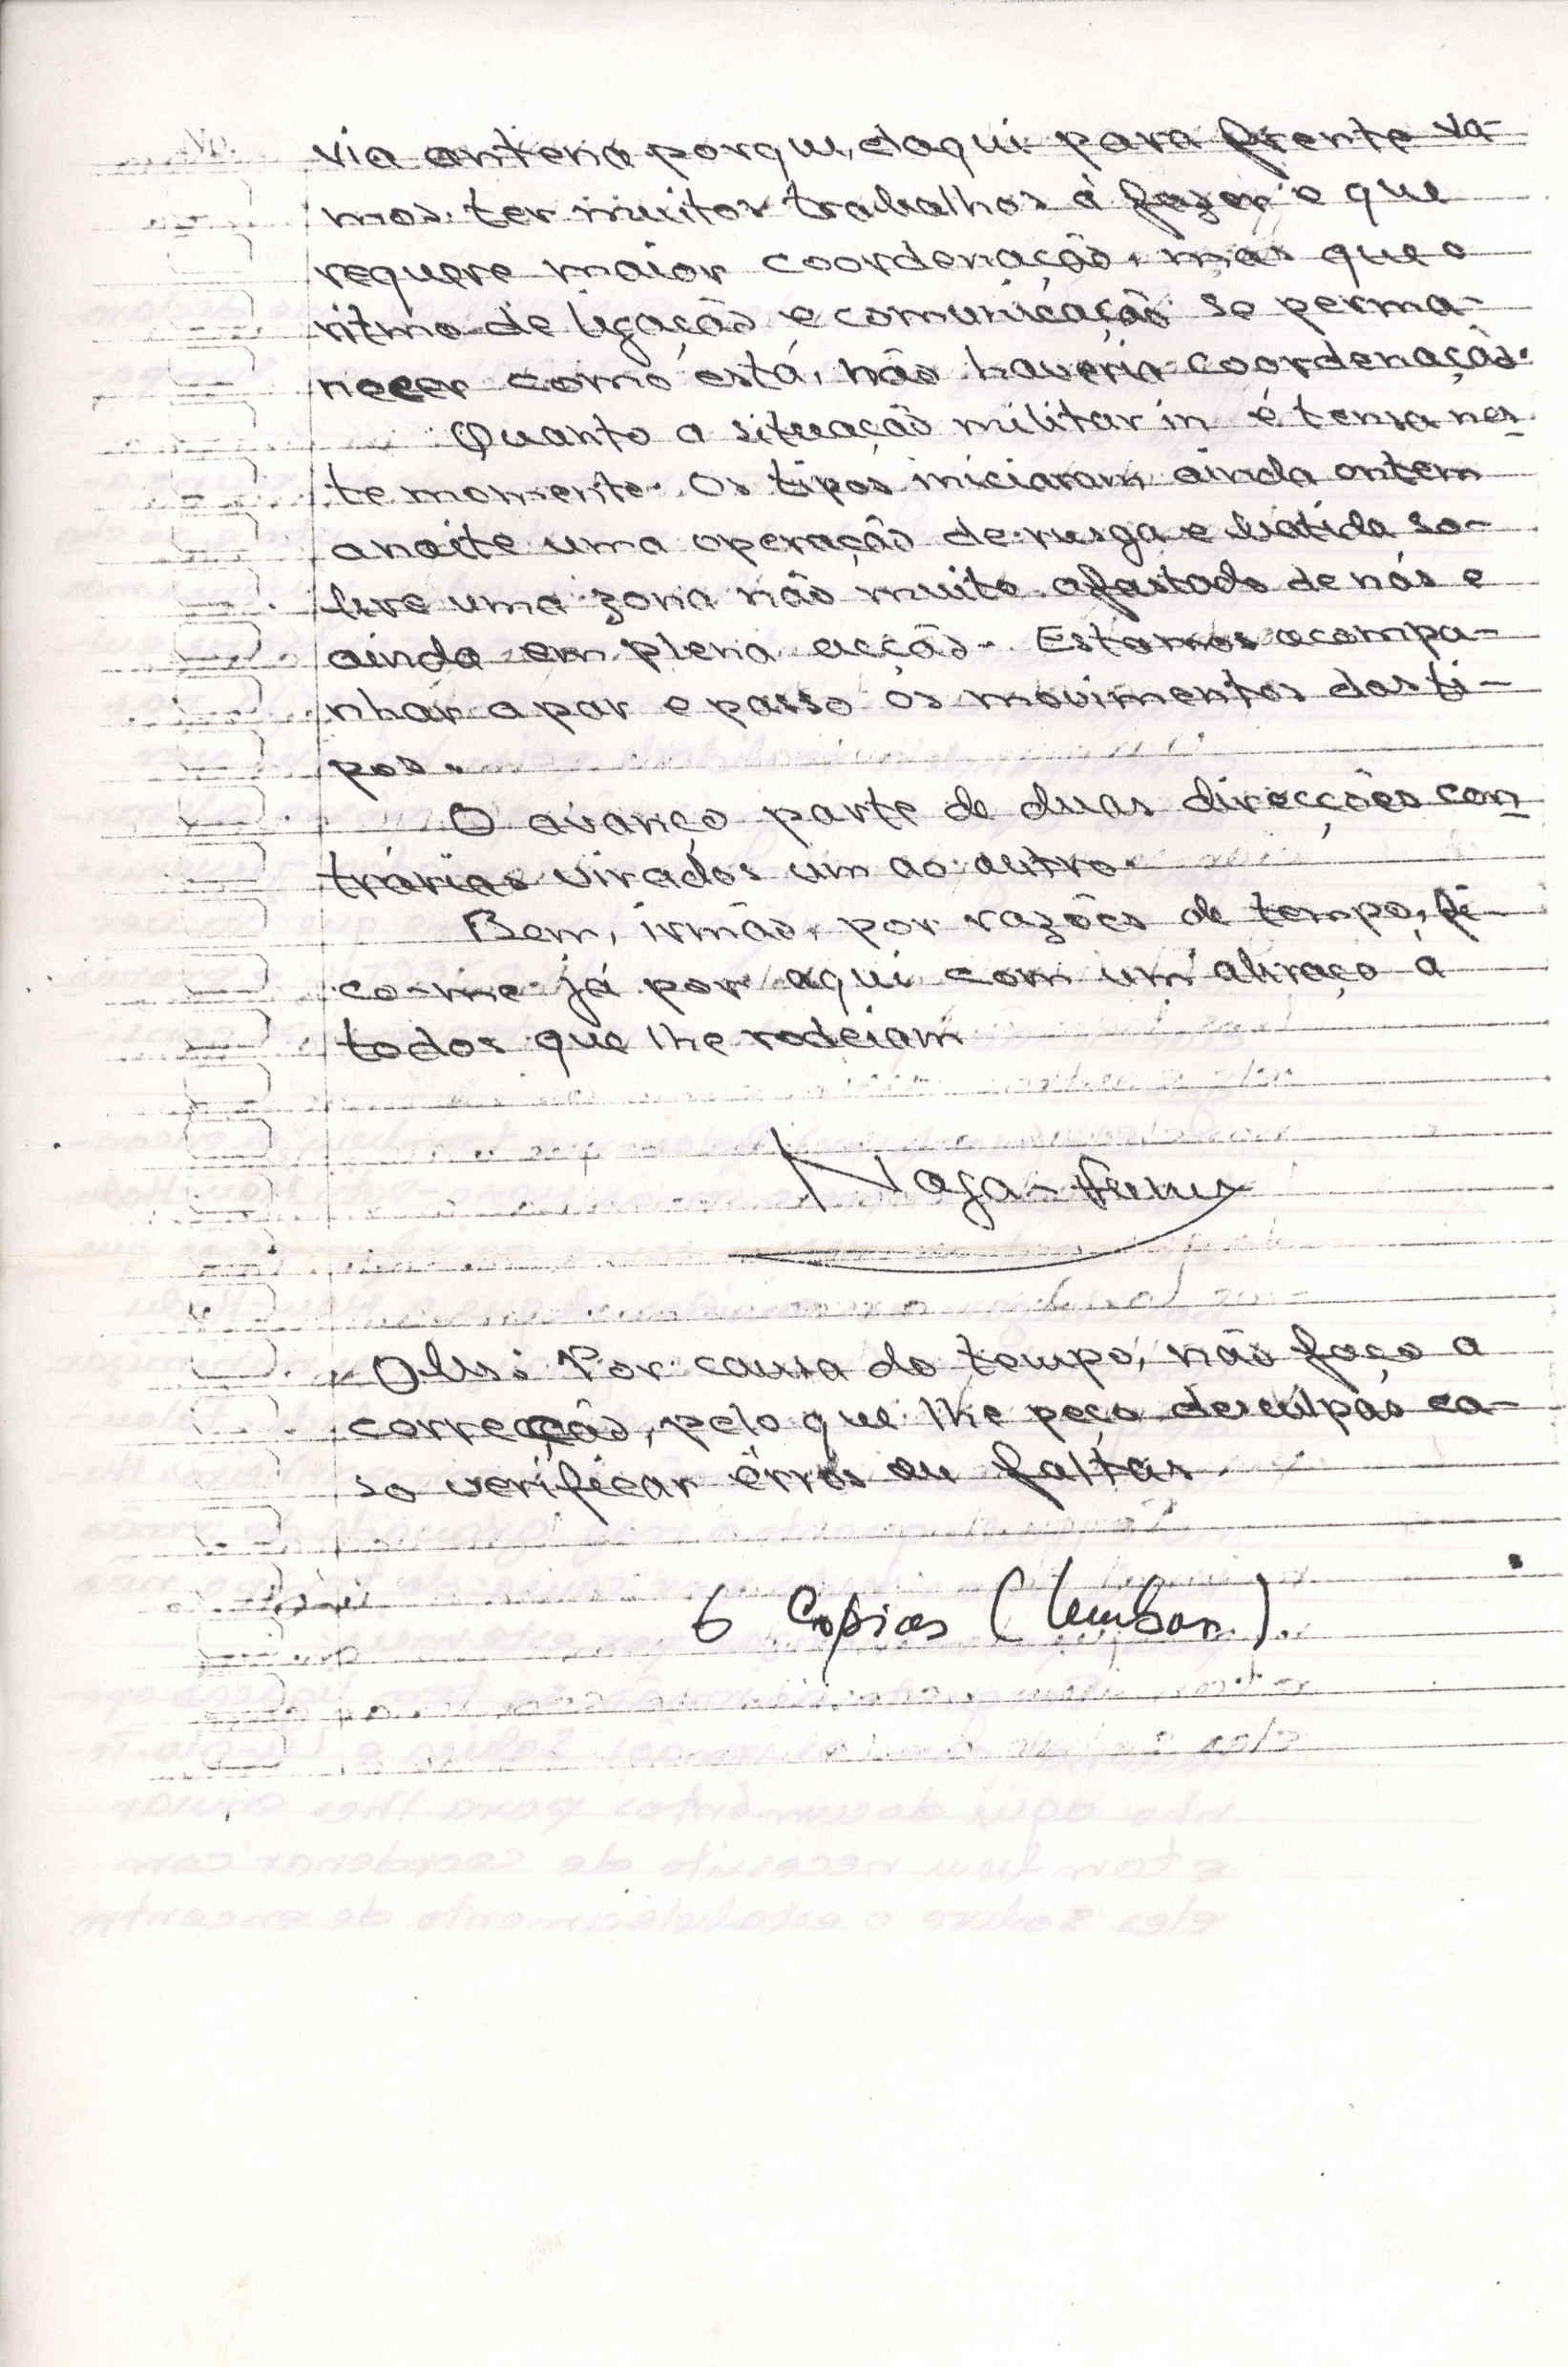 via antena porque, daqui para frente va-
mos ter muitos trabalhos à fazer e que
requere maior coordenação, mas que o
ritmo de ligação e comunicação se perma-
necer como está, não haveria coordenação.
Quanto a situação militar in é tensa nes-
te momento. Os tipos iniciaram ainda ontem
a noite uma operação de rusga e batida so-
bre uma zona não muito afastado de nós e
ainda em plena acção. Estamos acompa-
nhar a par e passo os movimentos dos ti-
pos.
O avanço parte de duas direcções con-
trárias virados um ao outro.
Bem, irmão, por razões de tempo, fi-
co-me já por aqui com um abraço à
todos que lhe rodeiam
Naga-
Obs: Por causa do tempo, não faço a
correcção, pelo que lhe peço desculpas ca-
so verificar êrros ou faltas.
6 Copias